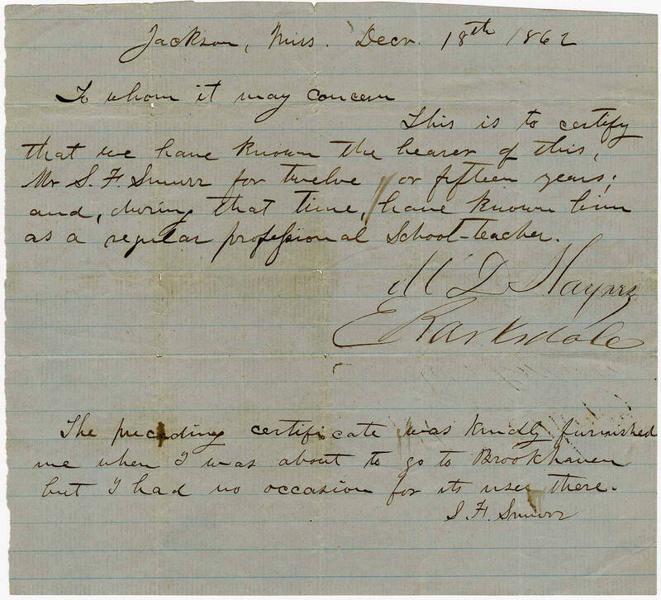 Jackson, Miss. Decr. 18th 1862
To whom it may concern
This is to certify
that we have known the bearer of this,
Mr S. F. Smurr for twelve or fifteen years;
and, during that time, have known him
as a regular professional School-teacher.
M D Haynes
E Barksdale
The preceding certificate was kindly furnished
me when I was about to go to Brookhaven
but I had no occasion for its use there.
S. F. Smurr